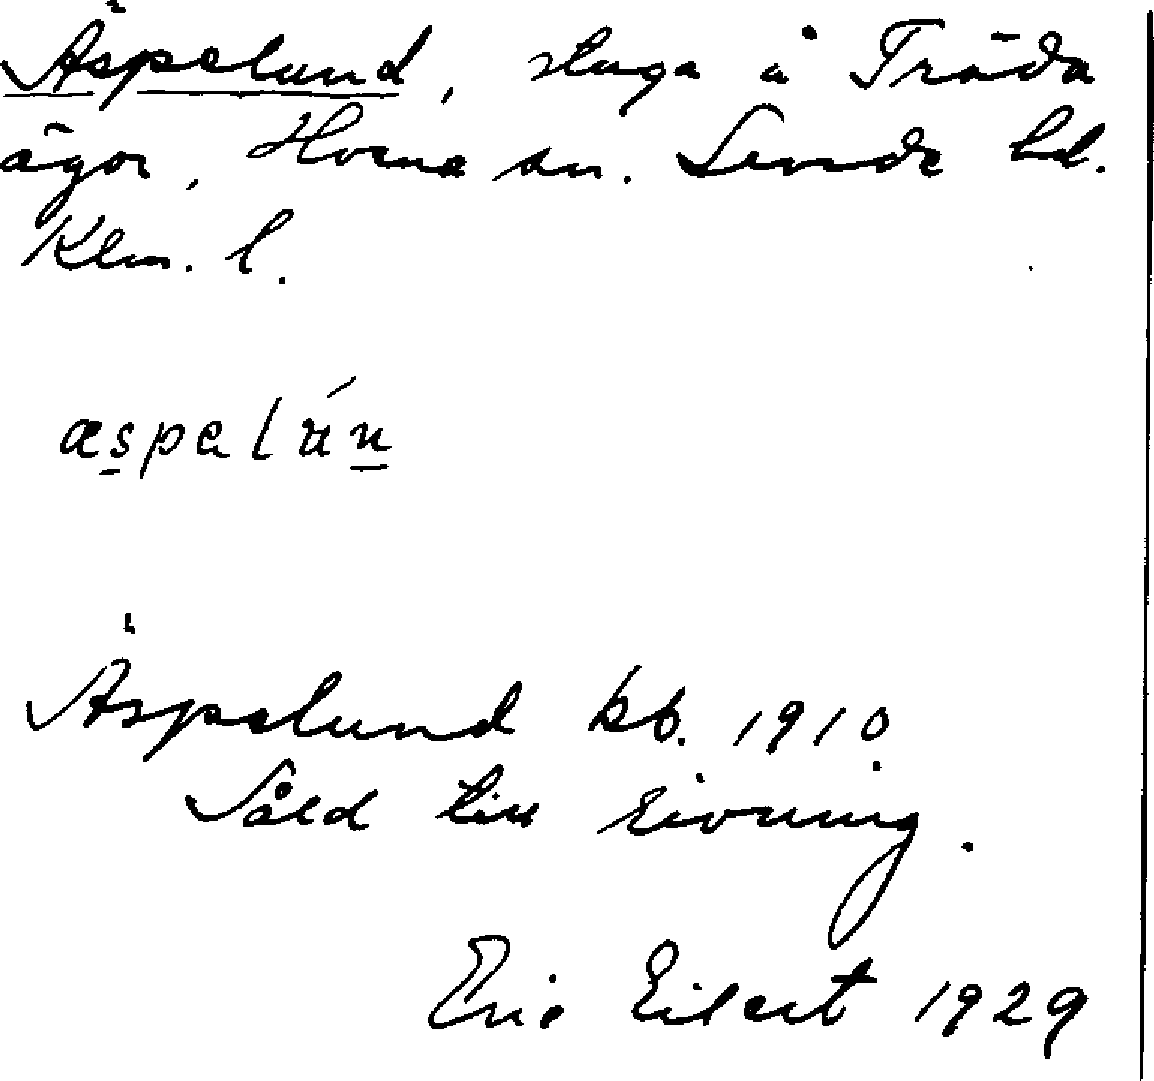 Äspelund, stuga å Träda
ägor, Horns sn. Sevede hd.
Klm. l.
æspelún
Äspelund kb. 1910.
Såld till rivning.
Eric Eilert 1929